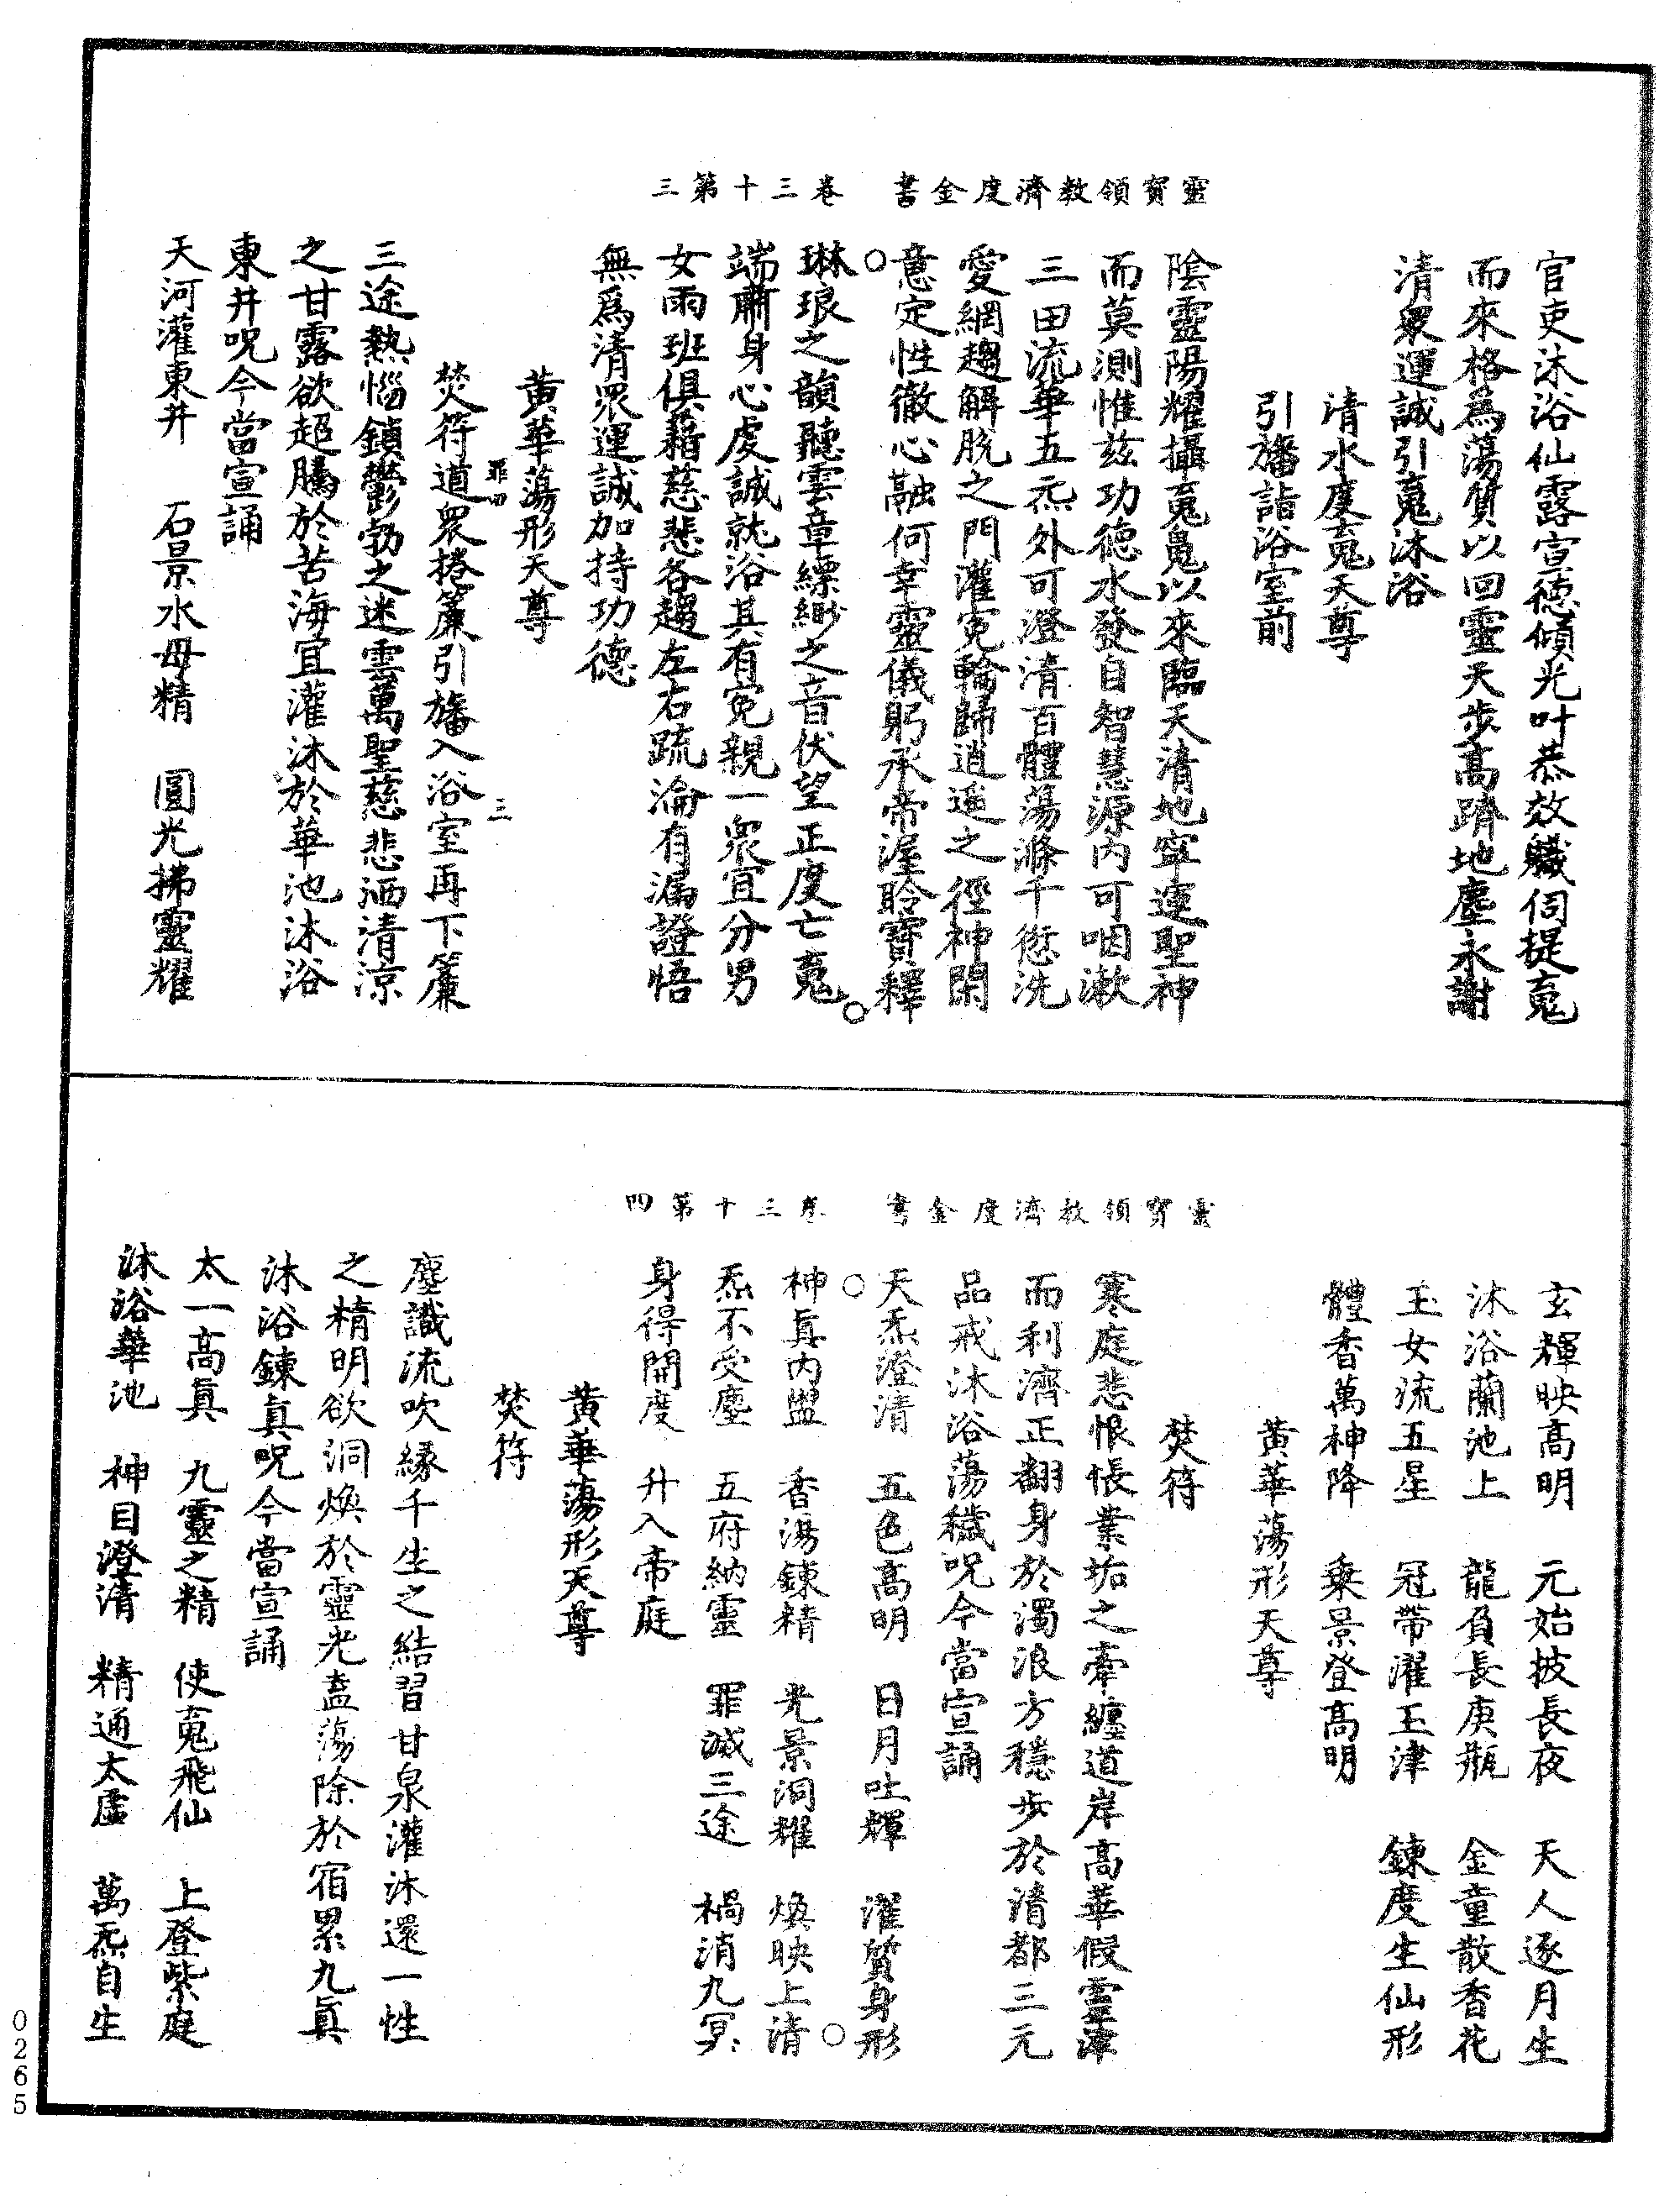 靈寶領教濟度金書 卷三十第三
官吏沐浴仙露宣德傾光叶恭效職伺提䰟
而來格為蕩質以回靈天步高躋地塵永謝
清衆運誠引䰟沐浴
清水度䰟天尊
引旛詣浴室前
陰靈陽耀攝䰟䰟以來臨天清地寧運聖神
而莫測惟兹功德水發自智慧源内可咽漱
三田流華五炁外可澄清百體蕩滌千愆洗
愛網趨解脱之門灌寃輪歸逍遥之徑神閑
意定性徹心融何幸靈儀躬承帝渥聆寶釋
琳琅之韻聽雲章縹緲之音伏望正度亡䰟
端肅身心虔誠就浴其有寃親一衆宜分男
女兩班俱藉慈悲各趨左右䟽淪有漏證悟
無爲清衆運誠加持功德
黄華蕩形天尊
罪四 三
焚符道衆捲簾引旛入浴室再下簾
三途熱惱鎖鬱勃之迷雲萬聖慈悲洒清涼
之甘露欲超騰於苦海宜灌沐於華池沐浴
東井呪今當宣誦
天河灌東井 石景水母精 圓光拂靈耀
靈寶領教濟度金書 卷三十第四
玄輝映高明 元始披長夜 天人逐月生
沐浴蘭池上 龍負長庚瓶 金童散香花
玉女流五星 冠帶濯玉津 鍊度生仙形
體香萬神降 乘景登高明
黄華蕩形天尊
焚符
寒庭悲恨悵業垢之牽纏道岸高華假靈津
而利濟正翻身於濁浪方穩步於清都三元
品戒沐浴蕩穢呪今當宣誦
天炁澄清 五色高明 日月吐輝 濯質身形
神眞内盥 香湯鍊精 光景洞耀 煥映上清
炁不受塵 五府納靈 罪滅三途 禍消九冥
身得開度 升入帝庭
黄華蕩形天尊
焚符
塵識流吹緣千生之結習甘泉灌沐還一性
之精明欲洞煥於靈光盍蕩除於宿累九眞
沐浴鍊眞呪今當宣誦
太一高眞 九靈之精 使䰟飛仙 上登紫庭
沐浴華池 神目澄清 精通太虛 萬炁自生
0265